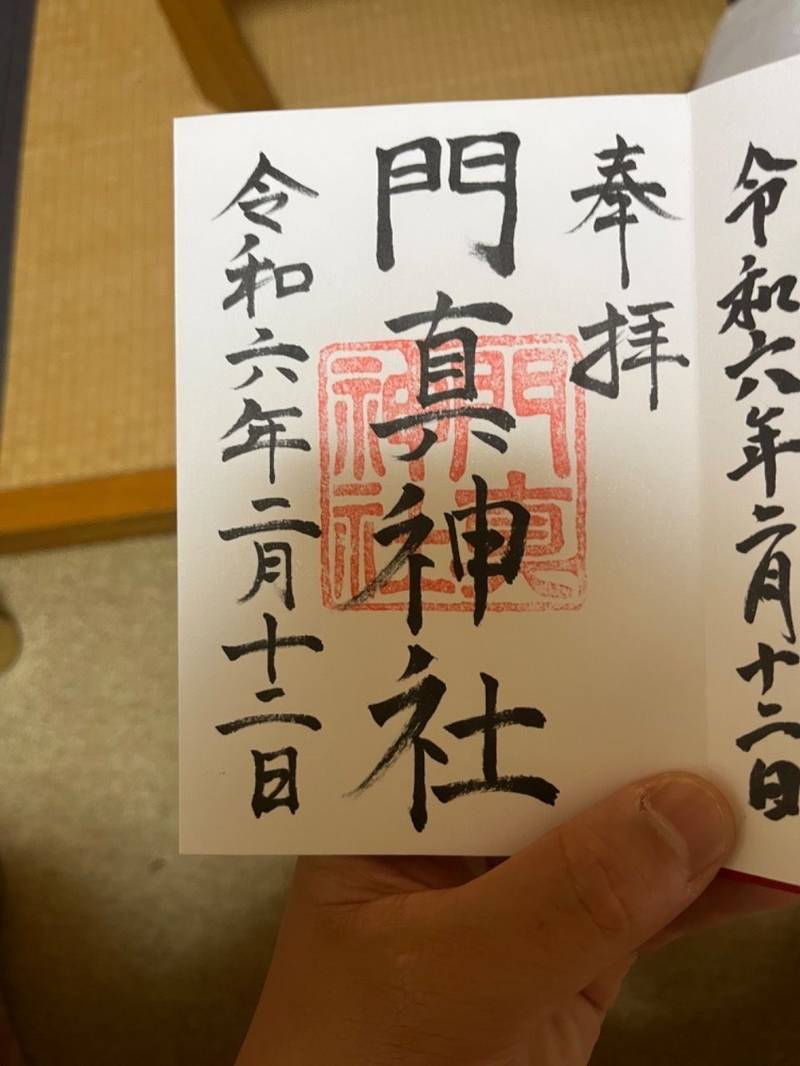 令和六年二月十二日
奉拝
門真神社
門真神社
令和六年二月十二日